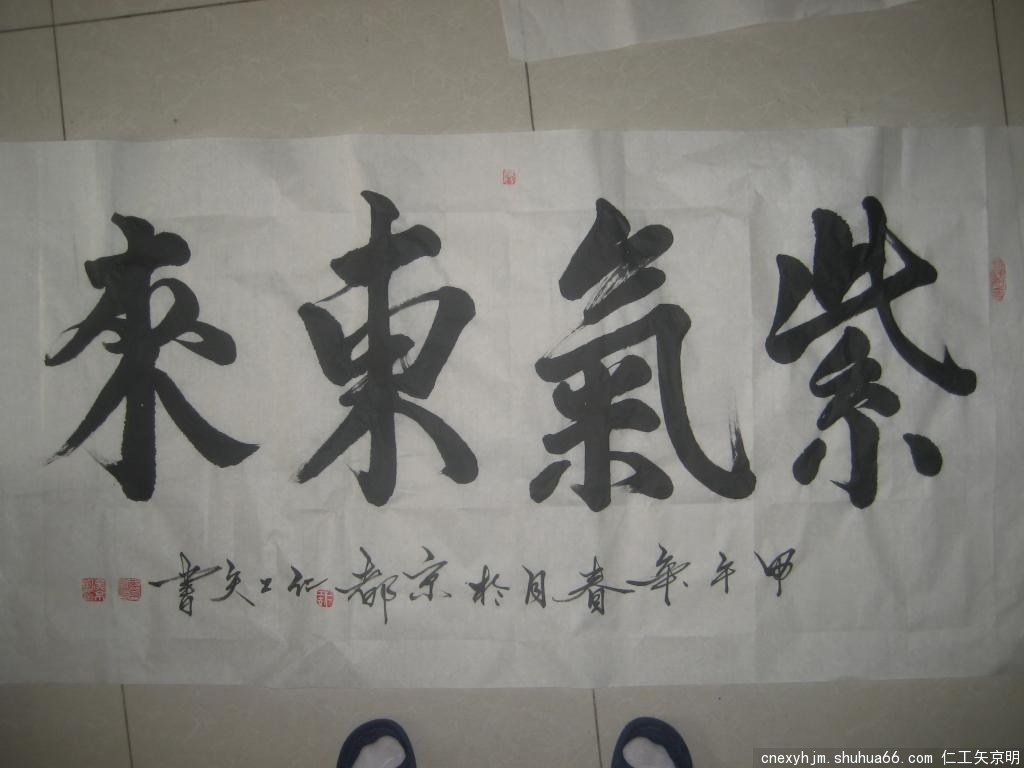 紫氣東來
甲午年春月於京都仁工矢書
cnexyhjm.shuhua66.com 仁工矢京明